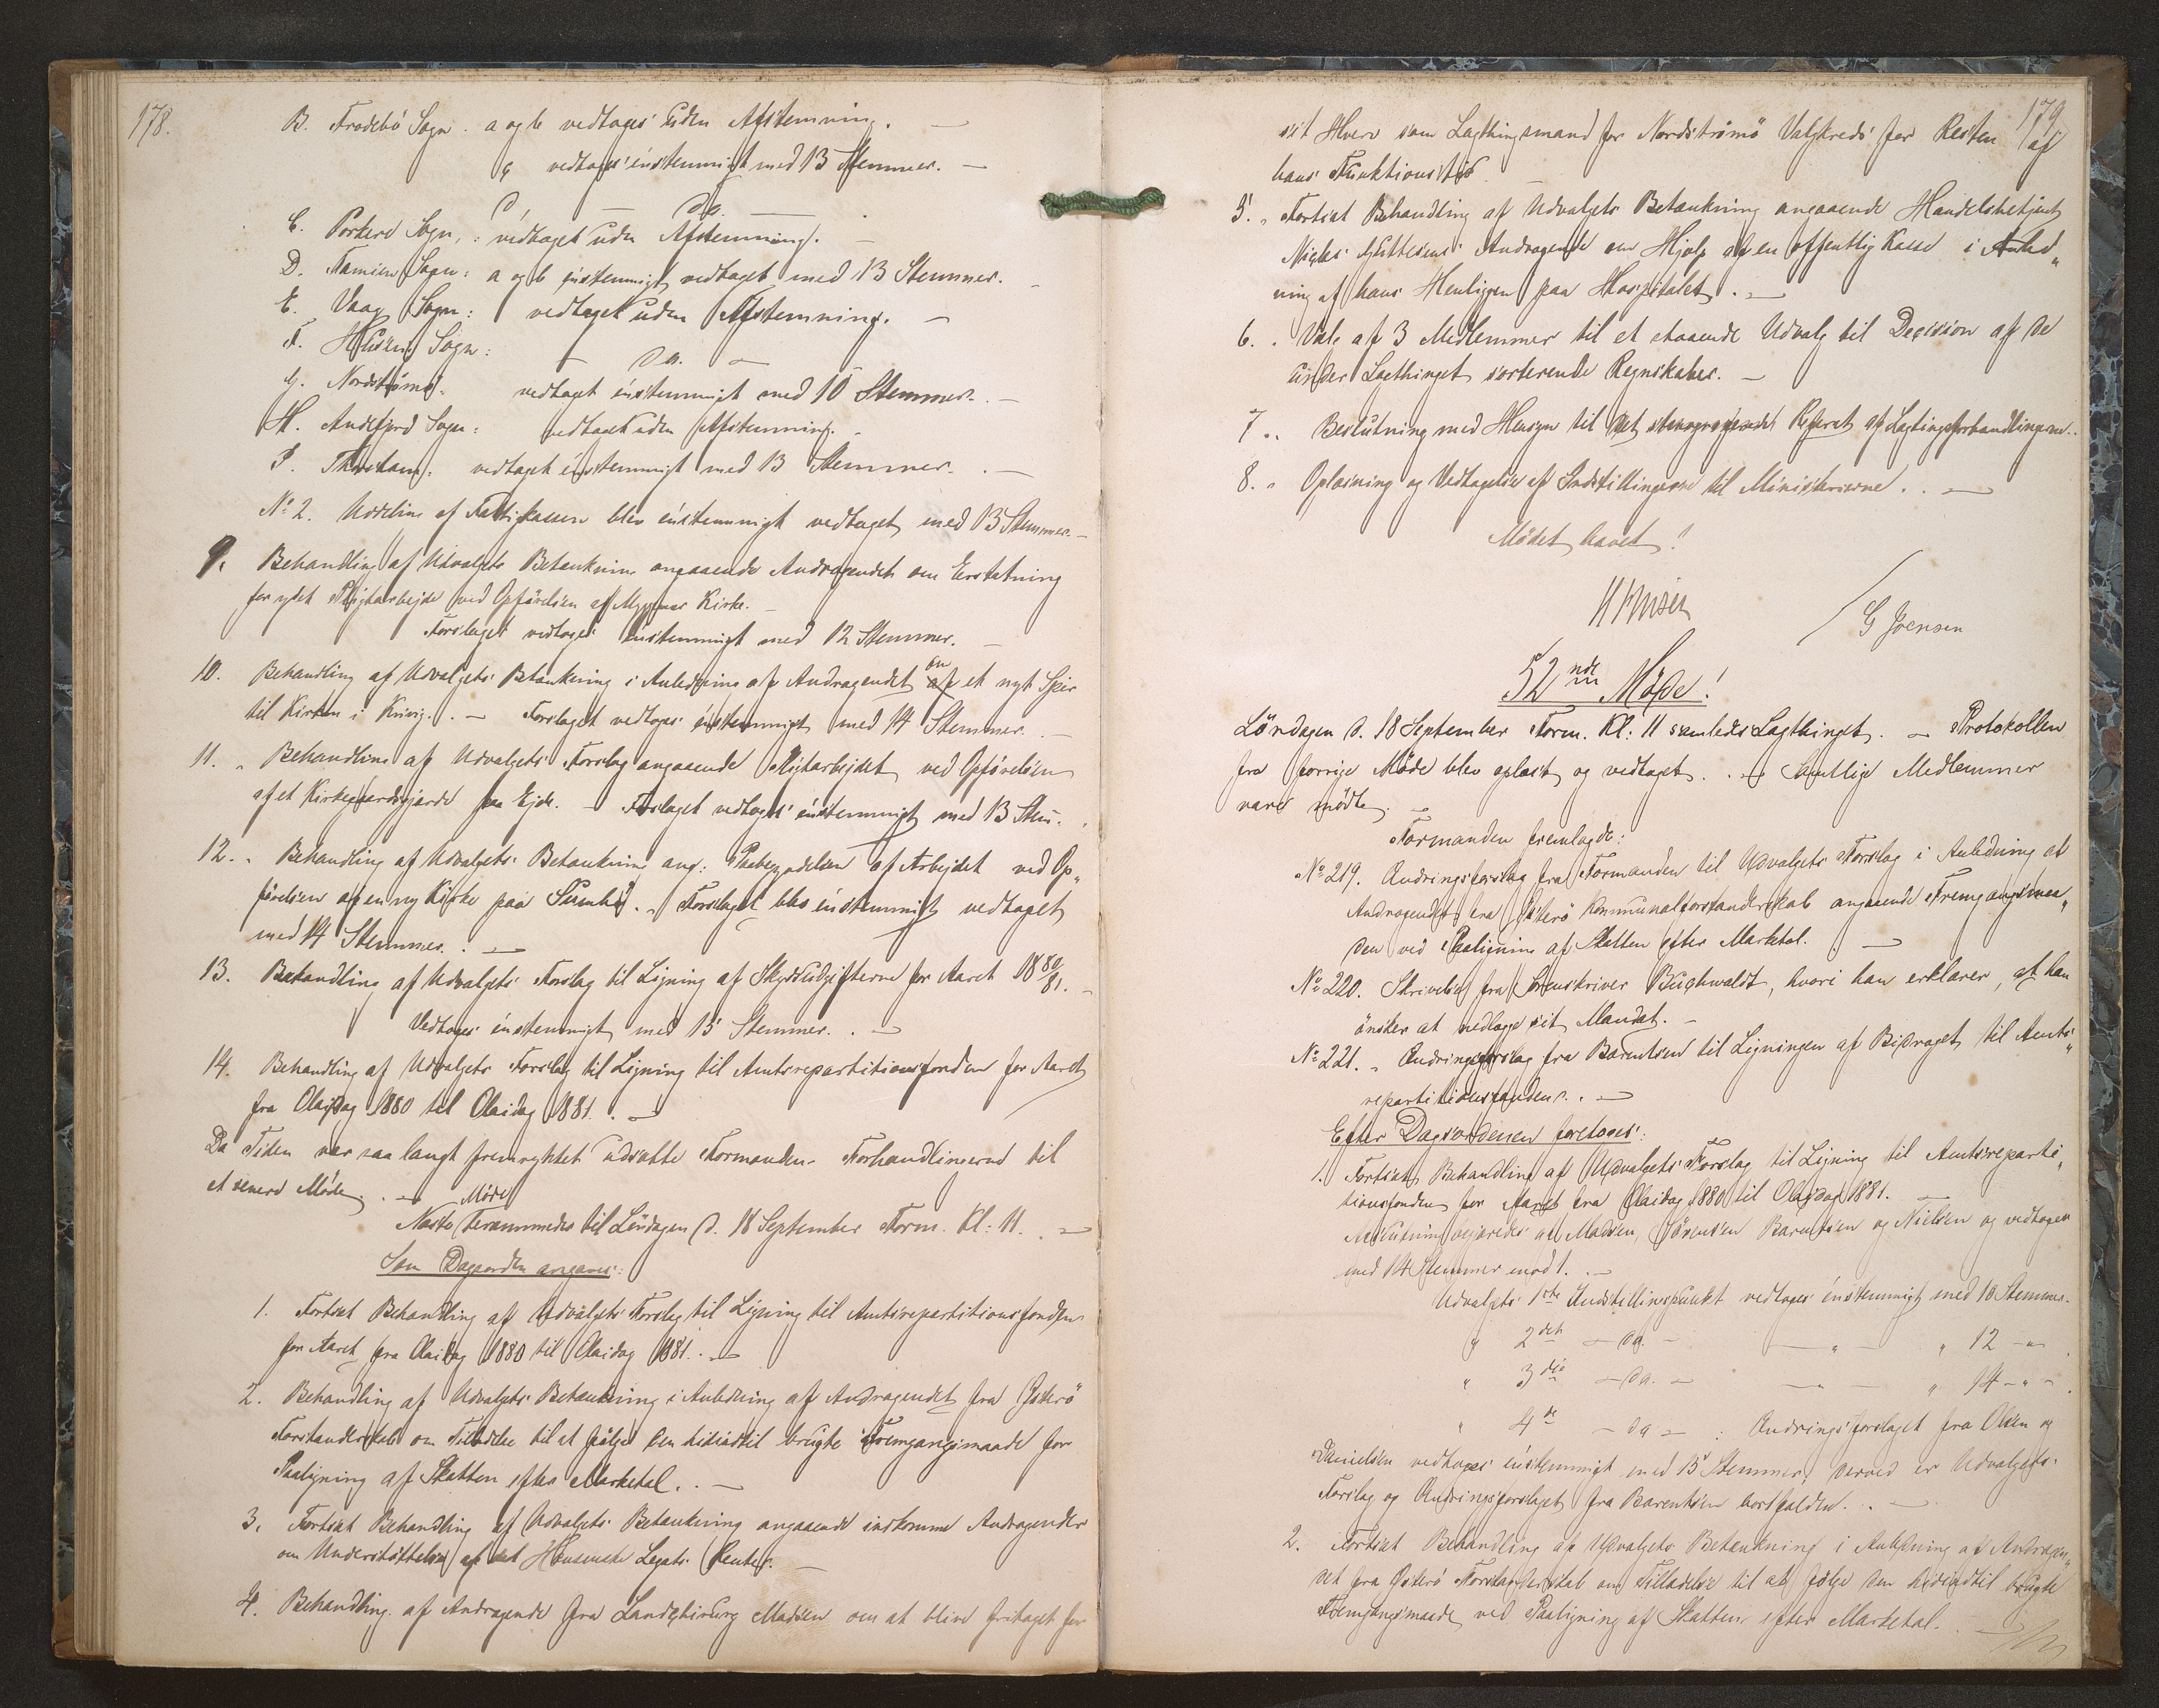 178.
B. Frodebø Sogn. a og b vedtages uden Afstemning. —
c vedtages eenstemmigt med 13 Stemmer. —
C. Porkere Sogn,: vedtaget uden Afstemning. —
D. Famien Sogn: a og b eenstemmigt vedtaget med 13 Stemmer. —
E. Vaag Sogn: vedtaget uden Afstemning. —
F. Husevig Sogn: — do. —
G. Nordstrømø: vedtaget eenstemmigt med 10 Stemmer. —
H. Andefjord Sogn: vedtaget uden Afstemning. —
I. Thorshavn: vedtaget eenstemmigt med 13 Stemmer. —
No 2. Uddeling af Fattigkassen blev eenstemmigt vedtaget med 13 Stemmer. —
9. Behandling af Udvalgets Betænkning angaaende Andragendet om Erstatning
for ydet Pligtarbejde ved Opførelsen af Myggenæs Kirke. —
Forslaget vedtoges eenstemmigt med 12 Stemmer. —
10. Behandling af Udvalgets Betænkning i Anledning af Andragendet om et nyt Spir
til Kirken i Kvivig. — Forslaget vedtoges eenstemmigt med 14 Stemmer. —
11. Behandling af Udvalgets Forslag angaaende Pligtarbejdet ved Opførelsen
af et Kirkegaardsgjærde paa Ejde. — Forslaget vedtoges eenstemmigt med 13 Stem.
12. Behandling af Udvalgets Betænkning ang: Paabegyndelsen af Arbejdet ved Op„
førelsen af en ny Kirke paa Sumbø. Forslaget blev eenstemmigt vedtaget
med 14 Stemmer. —
13. Behandling af Udvalgets Forslag til Ligning af Skydsudgifterne for Aaret 1880/81. —
Vedtoges eenstemmigt med 15 Stemmer. —
14. Behandling af Udvalgets Forslag til Ligning til Amtsrepartitionsfonden for Aaret
fra Olaidag 1880 til Olaidag 1881. —
Da Tiden var saa langt fremrykket udsatte Formanden Forhandlingerne til
et senere Møde. —
Næste Møde berammedes til Lørdagen d. 18 September Form. Kl: 11. —
Som Dagsorden angaves:
1. Fortsat Behandling af Udvalgets Forslag til Ligning til Amtsrepartitionsfonden
for Aaret fra Olaidag 1880 til Olaidag 1881. —
2. Behandling af Udvalgets Betænkning i Anledning af Andragendet fra Østerø
Forstanderskab om Tilladelse til at følge den hidindtil brugte Fremgangsmaade for
Paaligning af Skatten efter Marketal. —
3. Fortsat Behandling af Udvalgets Betænkning angaaende indkomne Andragender
om Understøttelse af det Hansenske Legats Renter. —
4. Behandling af Andragende fra Landfysicus Madsen om at blive fritaget for
179
sit Hverv som Lagthingsmand for Nordstrømø Valgkreds for Resten af
hans Funktionstid.
5. Fortsat Behandling af Udvalgets Betænkning angaaende Handelsbetjent
Niclas Guttesens Andragende om Hjælp af en offentlig Kasse i Anled„
ning af hans Henliggen paa Hospitalet. —
6. Valg af 3 Medlemmer til et staaende Udvalg til Decision af de
under Lagthinget sorterende Regnskaber. —
7. Beslutning med Hensyn til det stenograferede Referat af Lagtingsforhandlingerne.
8. Oplæsning og Vedtagelse af Indstillingerne til Ministerierne. —
Mødet hævet!
G Joensen
52nde Møde!
Lørdagen d. 18 September Form. Kl: 11 samledes Lagthinget. — Protokollen
fra forrige Møde blev oplæst og vedtaget. — Samtlige Medlemmer
vare mødte. —
Formanden fremlagde:
No 219. Ændringsforslag fra Formanden til Udvalgets Forslag i Anledning af
Andragendet fra Østerø Kommunalforstanderskab angaaende Fremgangsmaa„
den ved Paaligning af Skatten efter Marketal. —
No 220. Skrivelse fra Sorenskriver Buchwaldt, hvori han erklærer, at han
ønsker at nedlægge sit Mandat. —
No 221. Ændringsforslag fra Barentsen til Ligningen af Bidraget til Amts„
repartitionsfonden. —
Efter Dagsordenen foretoges:
1. Fortsat Behandling af Udvalgets Forslag til Ligning til Amtsreparti„
tionsfonden for Aaret fra Olaidag 1880 til Olaidag 1881.
Afslutning begæredes af Madsen, Sørensen Barentsen og Nielsen og vedtagen
med 14 Stemmer mod 1. —
Udvalgets 1ste Indstillingspunkt vedtoges eenstemmigt med 13 Stemmer.
„ 2det — do. — — „ — „ 12 — „ .
„ 3die — do. — — „ — „ 14 — „ — .
„ 4de — do — : Ændringsforslaget fra Olsen og
Danielsen vedtoges eenstemmigt med 15 Stemmer, derved er Udvalgets
Forslag og Ændringsforslaget fra Barentsen bortfalden. —
2. Fortsat Behandling af Udvalgets Betænkning i Anledning af Andragen„
det fra Østerø Forstanderskab om Tilladelse til at følge den hidindtil brugte
Fremgangsmaade ved Paaligning af Skatten efter Marketal. —